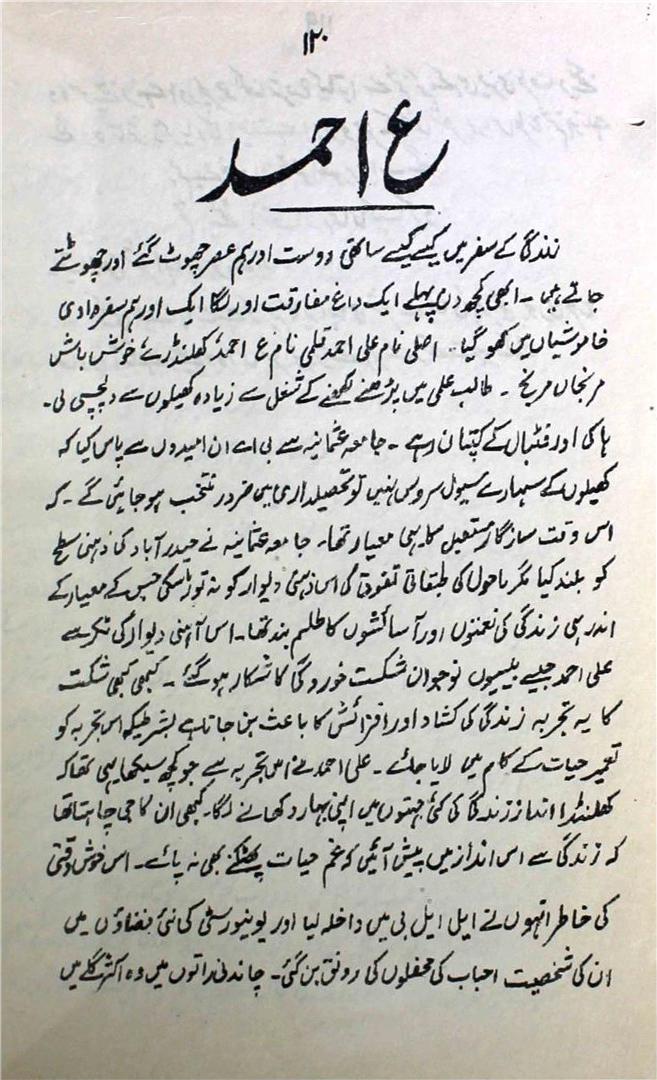 ۱۲۰
ع احمد
زندگی کے سفر میں کیسے کیسے ساتھی دوست اور ہم عصر چھوٹ گئے اور چھوٹتے
جاتے ہیں ۔ ابھی کچھ دن پہلے ایک داغ مفارقت اور لگا ایک اور ہم سفر وادی
خاموشیاں میں کھو گیا ۔ اصلی نام علی احمد قلمی نام ع احمد، کھلنڈرے، خوش باش
مرنجاں مرنج ۔ طالب علمی میں پڑھنے لکھنے کے شغل سے زیادہ کھیلوں سے دلچسپی لی ۔
ہاکی اور فٹبال کے کپتان رہے ۔ جامعہ عثمانیہ سے بی اے ان امیدوں سے پاس کیا کہ
کھیلوں کے سہارے سیول سروس نہیں تو تحصیلداری میں ضرور منتخب ہو جائیں گے ۔ کہ
اس وقت سازگار مستقبل کا یہی معیار تھا ۔ جامعہ عثمانیہ نے حیدرآباد کی ذہنی سطح
کو بلند کیا مگر ماحول کی طبقاتی تفوق کی اس ذہنی دیوار کو نہ توڑ سکی جس کے معیار کے
اندر ہی زندگی کی نعمتوں اور آسائشوں کا طلسم بند تھا ۔ اس آہنی دیوار کی ٹکر سے
علی احمد جیسے بیسیوں نوجوان شکست خوردگی کا شکار ہو گئے ۔ کبھی کبھی شکست
کا یہ تجربہ زندگی کی کشاد اور افزائش کا باعث بن جاتا ہے بشرطیکہ اس تجربہ کو
تعمیر حیات کے کام میں لایا جائے ۔ علی احمد نے اس تجربہ سے جو کچھ سیکھا یہی تھا کہ
کھلنڈرا انداز زندگی کی کئی جہتوں میں اپنی بہار دکھانے لگا ۔ کبھی ان کا جی چاہتا تھا
کہ زندگی سے اس انداز میں پیش آئیں کہ غم حیات پھٹکنے بھی نہ پائے ۔ اس خوش وقتی
کی خاطر انہوں نے ایل ایل بی میں داخلہ لیا اور یونیورسٹی کی نئی فضاؤں میں
ان کی شخصیت احباب کی محفلوں کی رونق بن گئی ۔ چاندنی راتوں میں وہ اکثر گلے میں